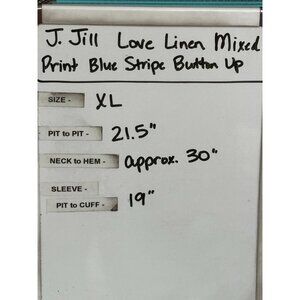 J. Jill Love Linen Mixed
Print Blue Stripe Button Up
SIZE - XL
PIT to PIT - 21.5"
NECK to HEM - approx. 30"
SLEEVE -
PIT to CUFF - 19"